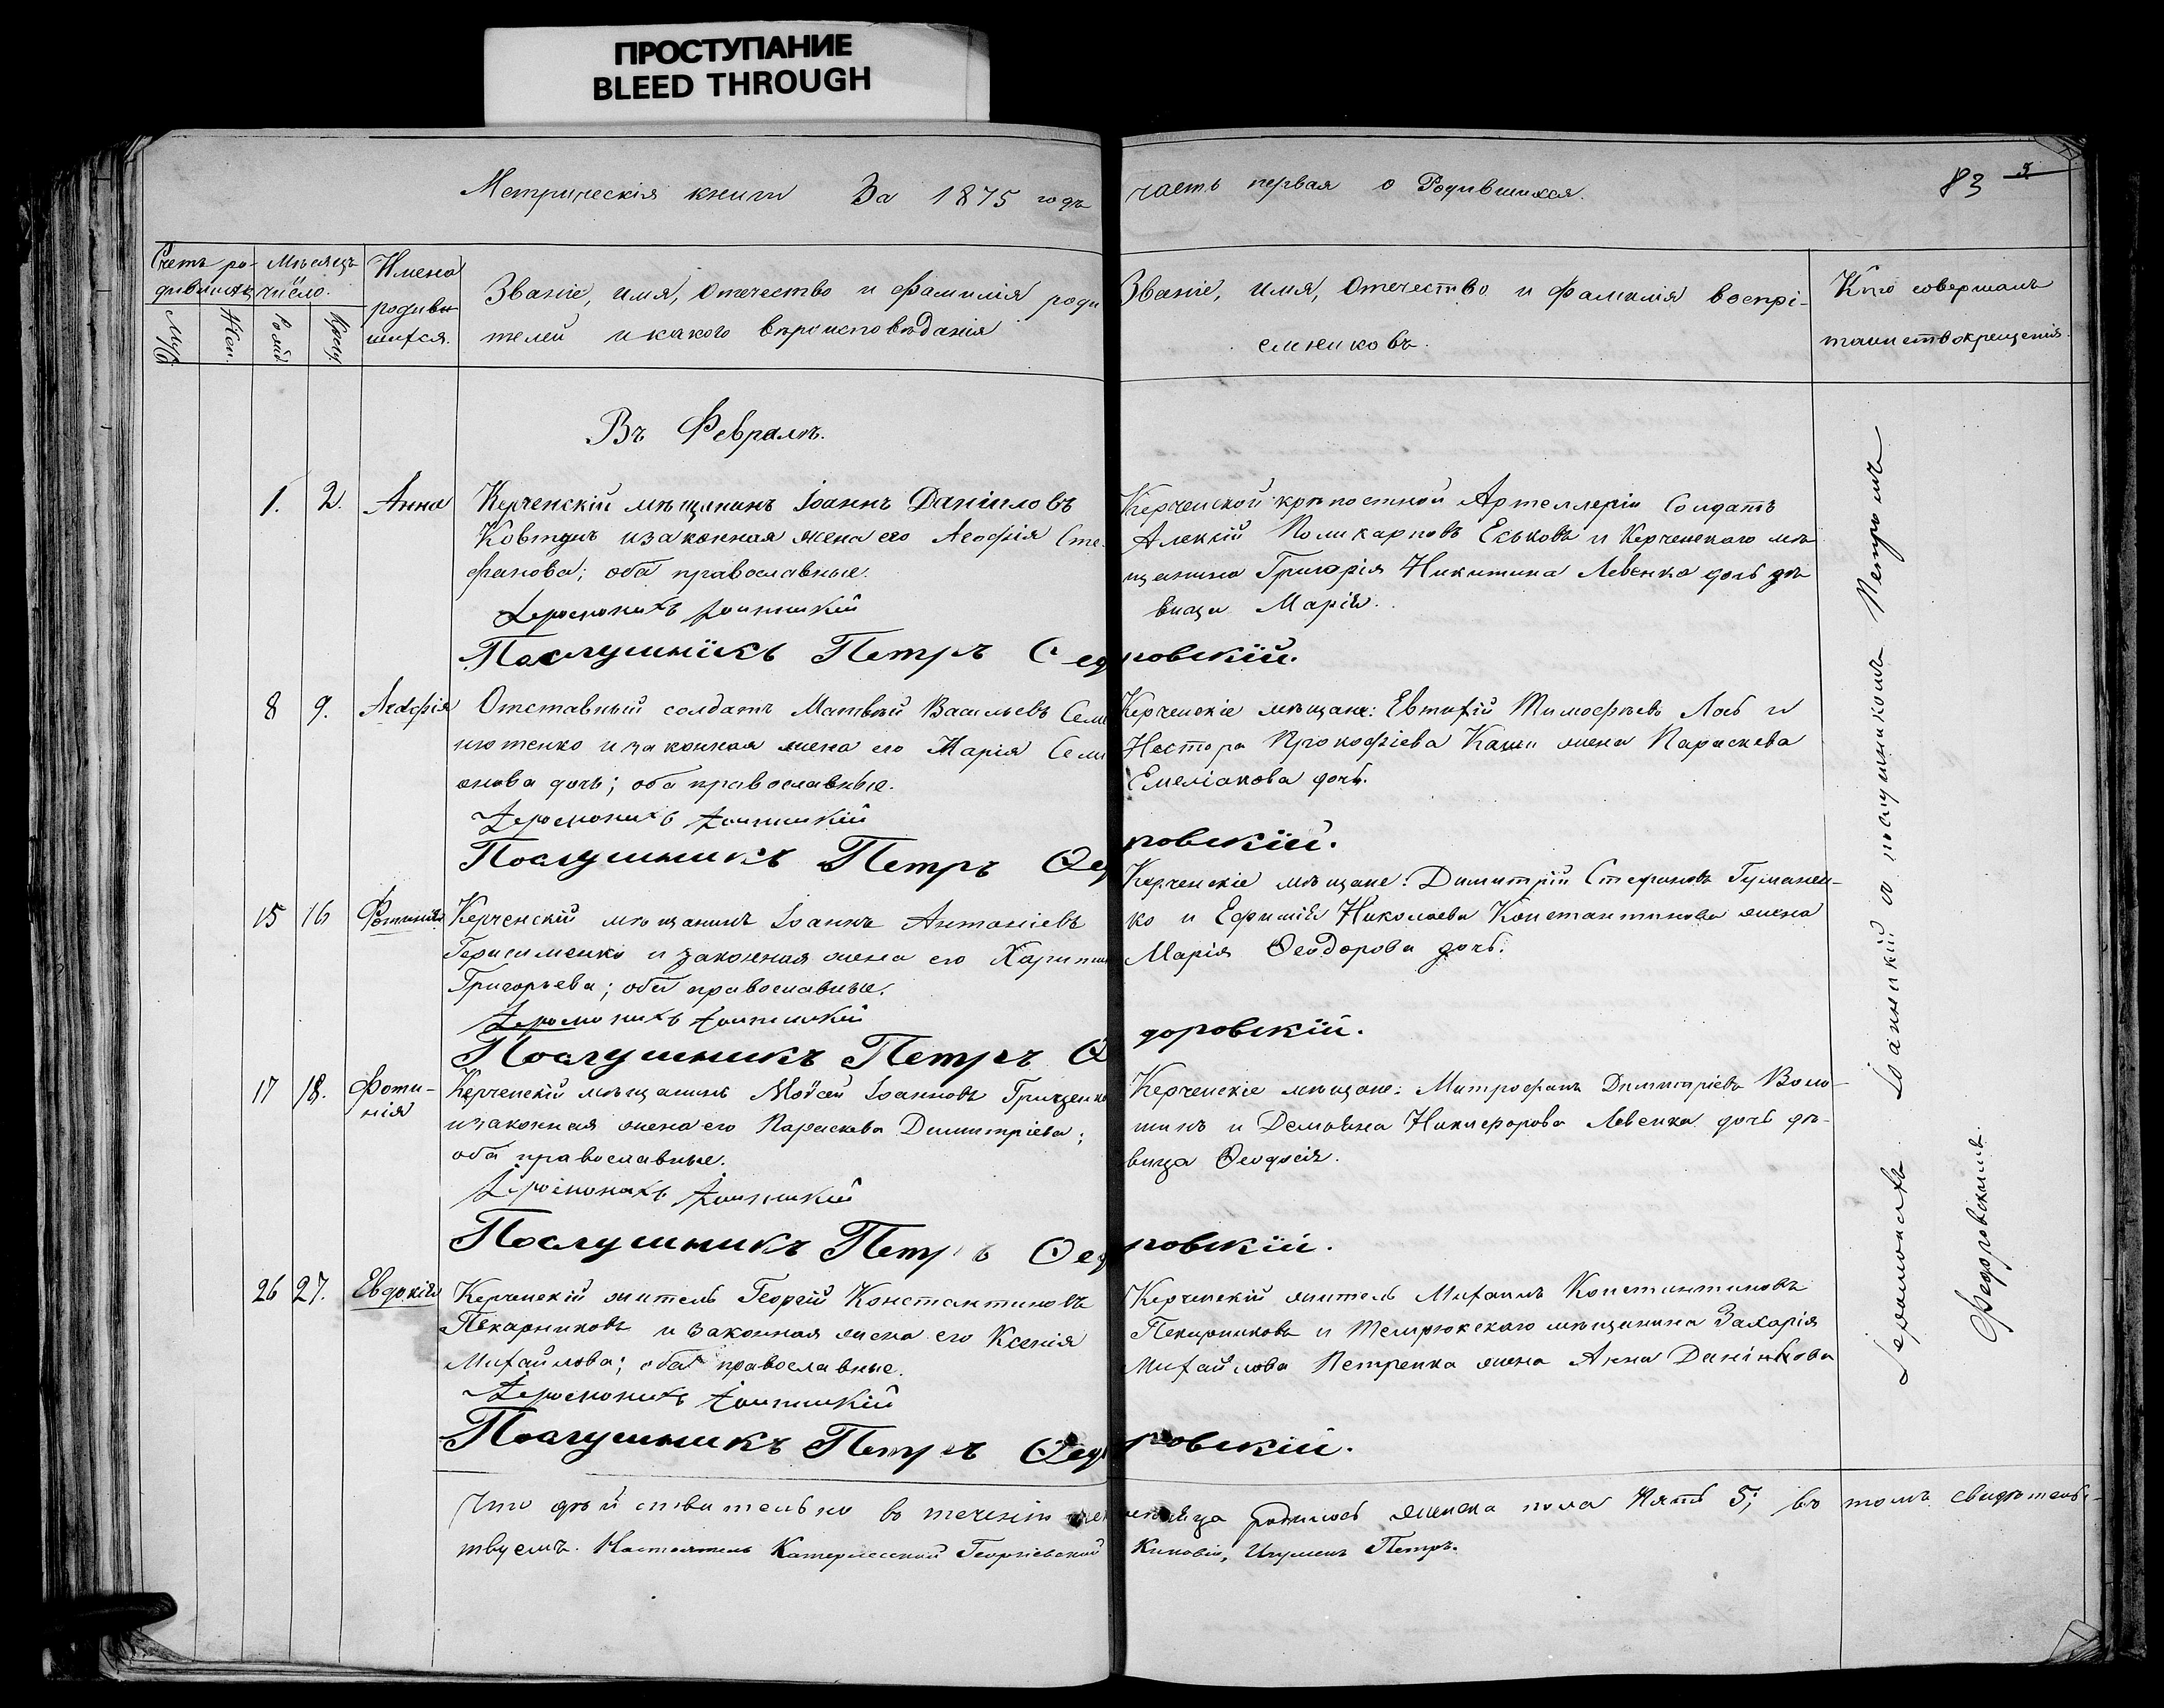 ПРОСТУПАНИЕ
BLEED THROUGH
Метрическія книги За 1875 годъ
часть первая о Родившихся.
83 5
Счетъ ро- дившихся
Муж. Жен.
Мѣсяцъ число.
Рожд Крещ
Имена родившихся.
Званіе, имя, Отечество и Фамилія роди
телей и какого вѣроисповѣданія
Званіе, имя, Отечество и Фамилія воспрі-
емниковъ.
Кто совершалъ
таинство крещенія.
Въ Февралѣ.
1. 2. Анна
Керченскій мѣщанинъ Іоаннъ Даніиловъ
Ковтунъ и законная жена его Агафія Сте-
фанова; оба православные.
Іеромонахъ Іоанникій
Послушнїкъ Петръ Ѳедоровскїй.
Керченской крѣпостной Артеллеріи Солдатъ
Алекѣй Поликарповъ Еськовъ и Керченскаго мѣ
щанина Григорія Никитина Левенка дочь дѣ
вица Марія.
8 9. Агафія
Отставный солдатъ Матвѣй Васильевъ Семи
нютенко и законная жена его Марія Семи
онова дочь; оба православные.
Іеромонахъ Іоанникій
Послушникъ Петръ Ѳедоровскїй.
Керченскіе мѣщане: Евтихій Тимофѣевъ Лоб и
Нестора Прокофіева Каши жена Параскева
Емеліанова дочь.
15 16 Фотинія
Керченскій мѣщанинъ Іоаннъ Антоніевъ
Герасименко и законная жена его Харитина
Григорьева; оба православные.
Іеромонахъ Іоанникій
Послушникъ Петръ Ѳедоровскїй.
Керченскіе мѣщане: Димитрій Стефановъ Гуманен-
ко и Ефимія Николаева Константинова жена
Марія Ѳеодорова дочь.
17 18. Фоти-
нія
Керченскій мѣщанинъ Моѵсей Іоанновъ Гриценко
и законная жена его Параскева Димитріева;
оба православные.
Іеромонахъ Іоанникій
Послушникъ Петръ Ѳедоровскїй.
Керченскіе мѣщане: Митрофанъ Димитріевъ Воло-
шинъ и Деміана Никифорова Левенка дочь дѣ-
вица Ѳеодосія.
26 27. Евдокія
Керченскій житель Георгій Константиновъ
Пекарниковъ и законная жена его Ксенія
Михайлова; оба православные.
Іеромонахъ Іоанникій
Послушникъ Петръ Ѳедоровскїй.
Керченскій житель Михаилъ Константиновъ
Пекарниковъ и Темрюкскаго мѣщанина Захарія
Михайлова Петренка жена Анна Даніилова
Іеромонахъ Іоанникій съ послушникомъ Петромъ
Федоровскимъ.
Что дѣйствительно въ теченіи мѣсяца родилось женска пола Пять 5; въ томъ свидѣтельс-
твуемъ. Настоятель Катерлесской Георгіевской Киновіи, Игуменъ Петръ.